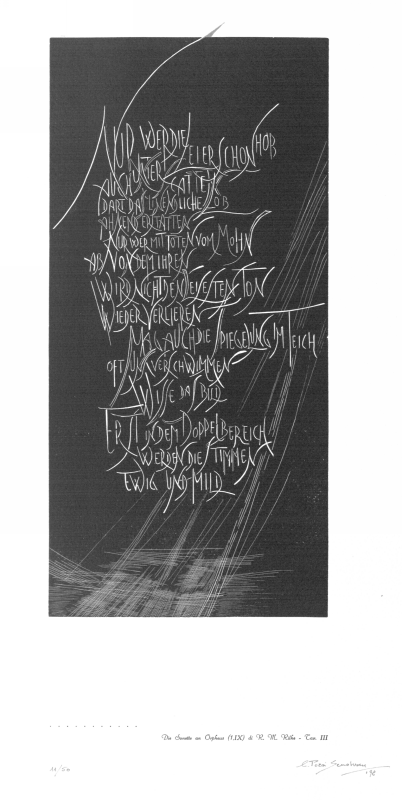 NUR WER DIE LEIER SCHON HOB
AUCH UNTER SCHATTEN
DARF DAS UNENDLICHE LOB
AHNEND ERSTATTEN
NUR WER MIT TOTEN VOM MOHN
ASS VON DEM IHREN
WIRD NICHT DEN LEISESTEN TON
WIEDER VERLIEREN
MAG AUCH DIE SPIEGELUNG IM TEICH
OFT UNS VERSCHWIMMEN
WISSE DAS BILD
ERST IN DEM DOPPELBEREICH
WERDEN DIE STIMMEN
EWIG UND MILD
Die Sonette an Orpheus (1.IX) di R. M. Rilke - Tav. III
/50
'96